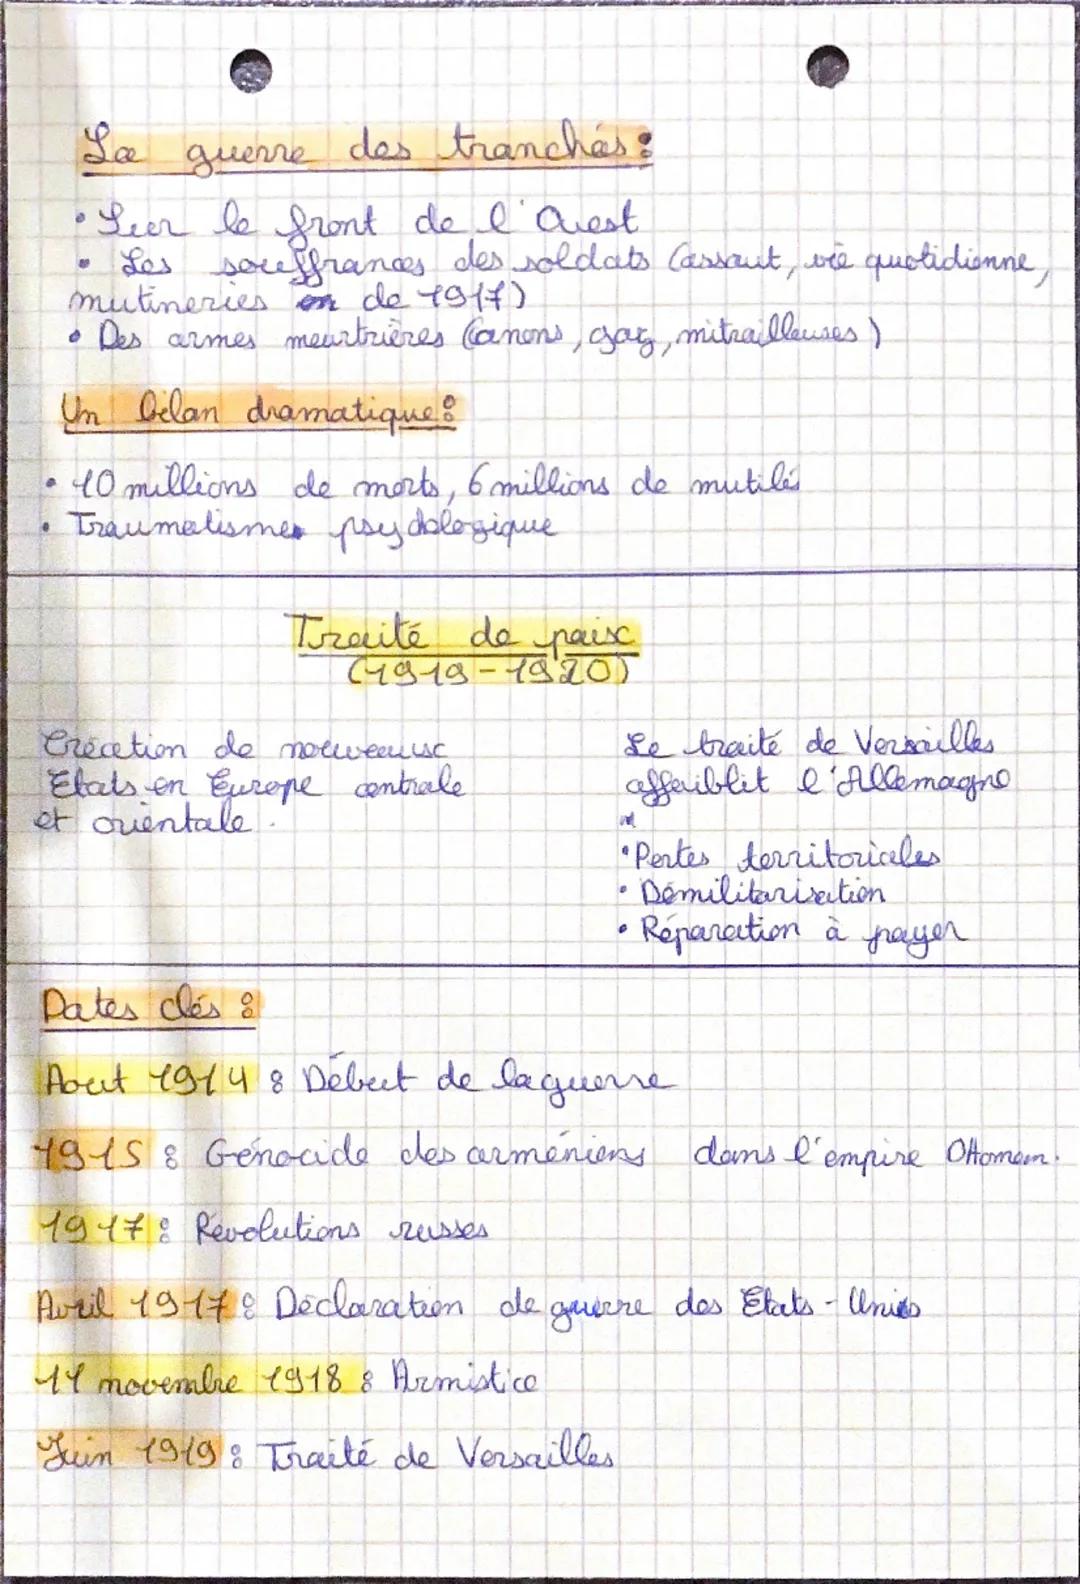 La guerre des tranchés :
• Sur le front de l'Ouest
• Les souffrances des soldats (assaut, vie quotidienne,
mutineries de 1917)
• Des armes meurtrières (canons, gaz, mitrailleuses)
Un bilan dramatique :
• 10 millions de morts, 6 millions de mutilés
• Traumatisme psychologique
Traité de paix
(1919-1920)
Création de nouveaux
Etats en Europe centrale
et orientale.
Le traité de Versailles
affaiblit l'Allemagne
• Pertes territoriales
• Démilitarisation
• Réparation à payer
Dates clés :
Aout 1914 : Début de la guerre
1915 : Génocide des arméniens dans l'empire Ottoman.
1917 : Révolutions russes
Avril 1917 : Déclaration de guerre des Etats-Unis
11 novembre 1918 : Armistice
Juin 1919 : Traité de Versailles